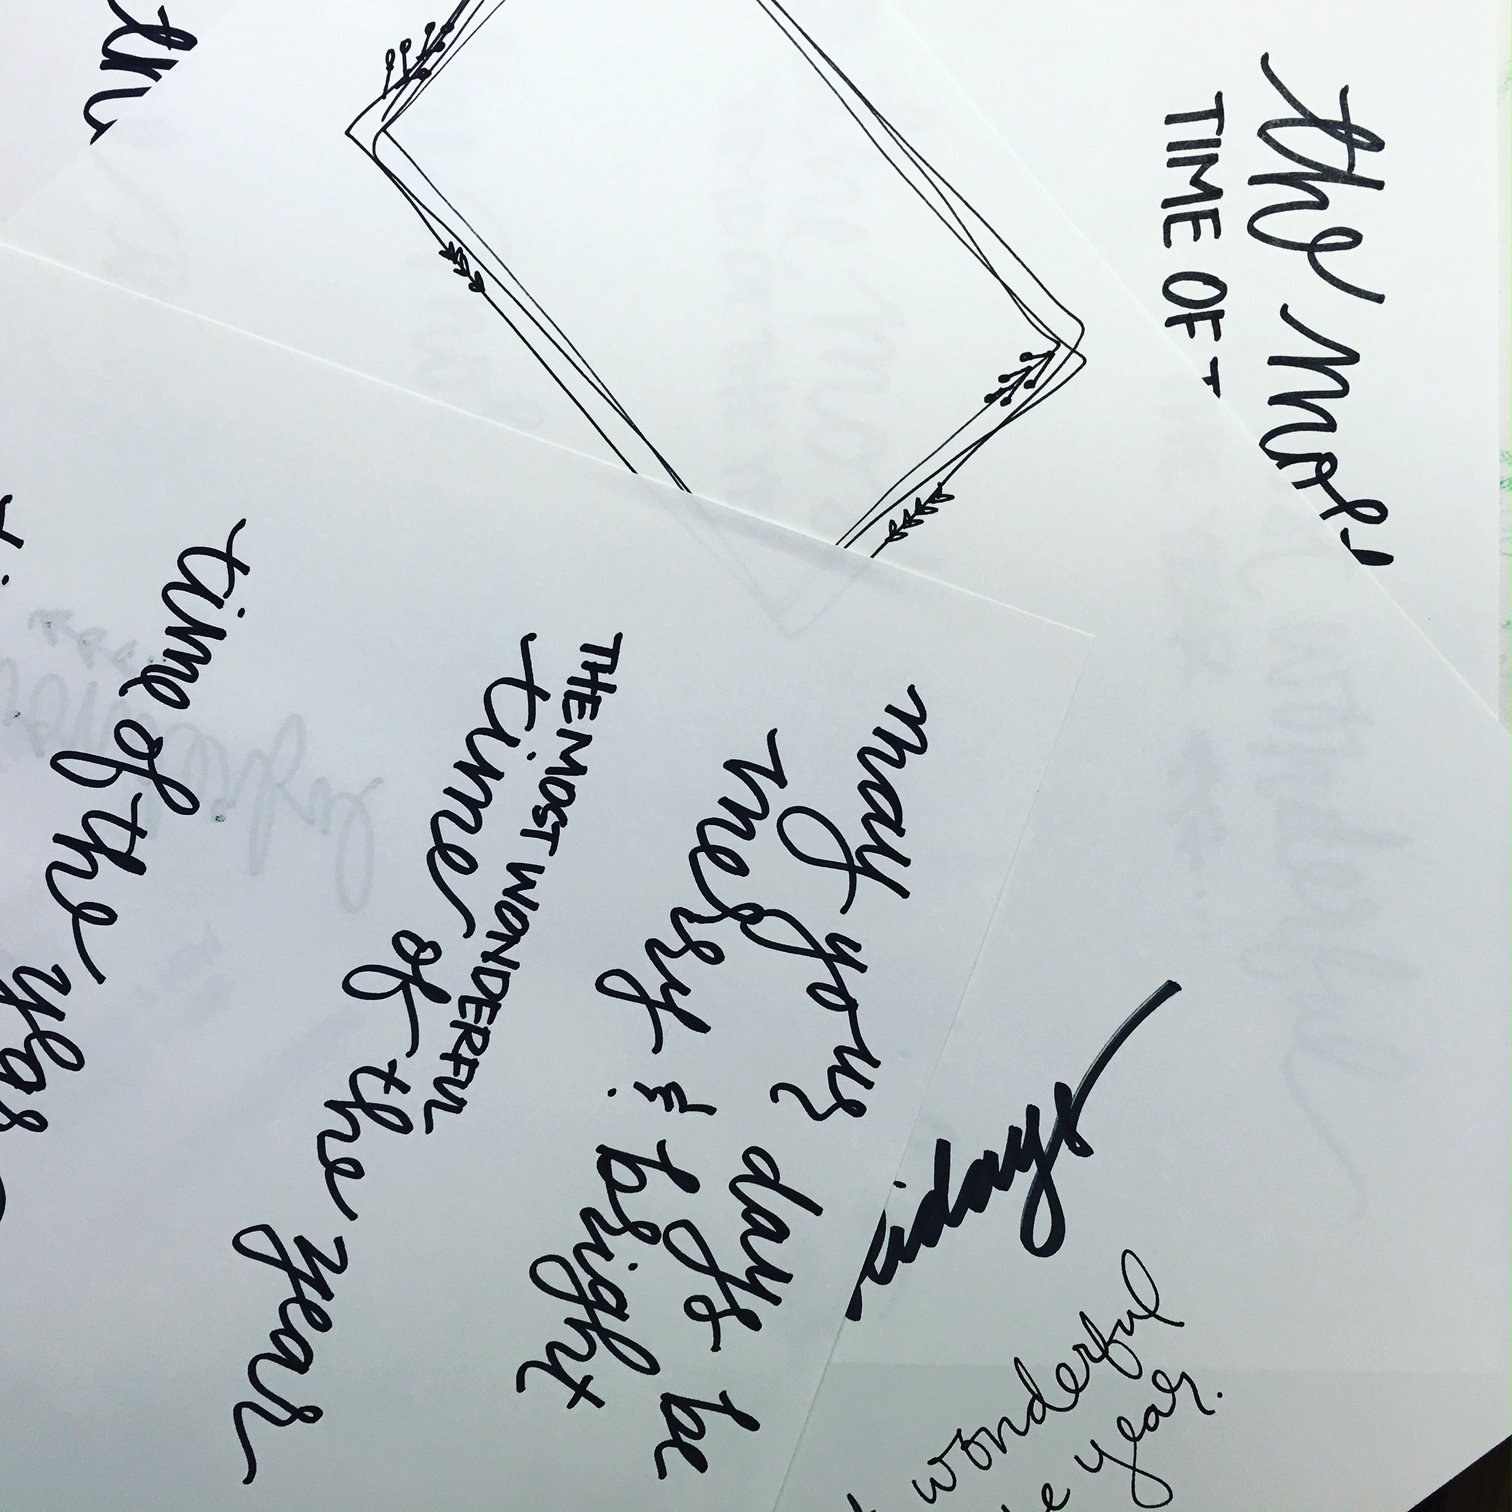 the most
TIME OF T
may your days be
merry & bright
THE MOST WONDERFUL
time of the year
time of the year
idays
wonderful
year.